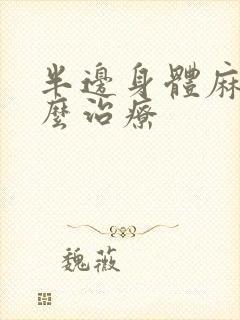 半邊身體麻
麼治療
魏薇